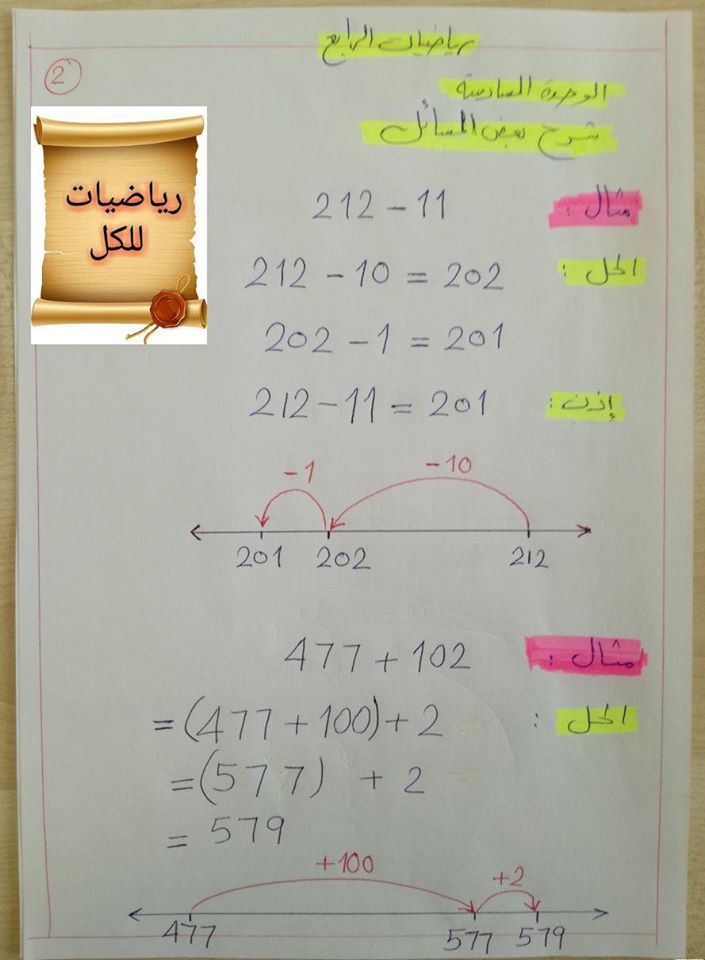 رياضيات الرابع
2
الوحدة السادسة
شرح بعض المسائل
رياضيات
للكل
مثال :
212 - 11
الحل :
212 - 10 = 202
202 - 1 = 201
إذن :
212 - 11 = 201
-1 -10
201 202 212
مثال :
477 + 102
الحل :
= (477 + 100) + 2
= (577) + 2
= 579
+100 +2
477 577 579